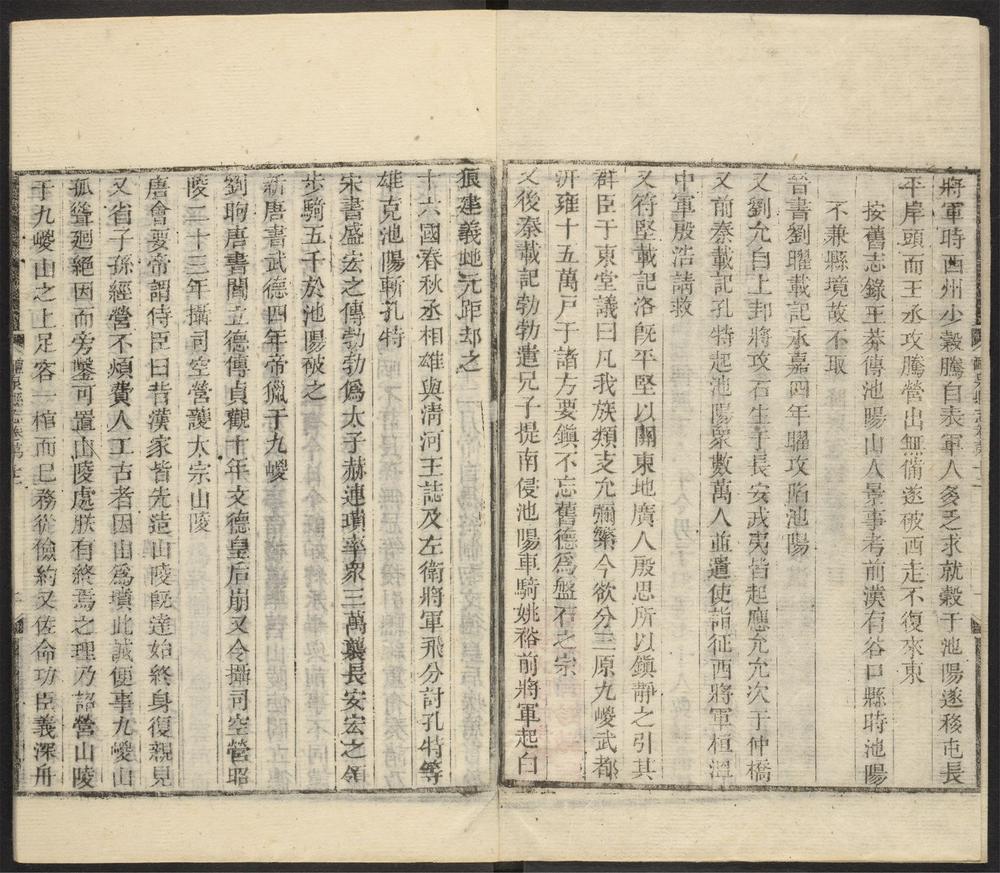 將軍時西州少穀騰自表軍人多乏求就穀于池陽遂移屯長
平岸頭而王丞攻騰營出無備遂破西走不復來東
按舊志錄王莽傳池陽山人景事考前漢有谷口縣時池陽
不兼縣境故不取
晉書劉曜載記永嘉四年曜攻陷池陽
又劉允自上邽將攻石生于長安戎夷皆起應允允次于仲橋
又前秦載記孔特起池陽眾數萬人並遣使詣征西將軍桓溫
中軍殷浩請救
又符堅載記洛旣平堅以關東地廣人殷思所以鎮靜之引其
群臣于東堂議曰凡我族類支允彌繁今欲分三原九嵕武都
汧雍十五萬戶于諸方要鎮不忘舊德為盤石之宗
又後秦載記勃勃遣兄子提南侵池陽車騎姚裕前將軍起白
狼建義虵元距却之
十六國春秋丞相雄與清河王誌及左衛將軍飛分討孔特等
雄克池陽斬孔特
宋書盛宏之傳勃勃為太子赫連瓆率衆三萬襲長安宏之領
步騎五千於池陽破之
新唐書武德四年帝獵于九嵕
劉昫唐書閻立德傳貞觀十年文德皇后崩又令攝司空營昭
陵二十三年攝司空營護太宗山陵
唐會要帝謂侍臣曰昔漢家皆先造山陵旣達始終身復親見
又省子孫經營不煩費人工古者因山為墳此誠便事九嵕山
孤聳迴絕因而旁鑿可置山陵處朕有終焉之理乃詔營山陵
于九嵕山之上足容一棺而已務從儉約又佐命功臣義深舟